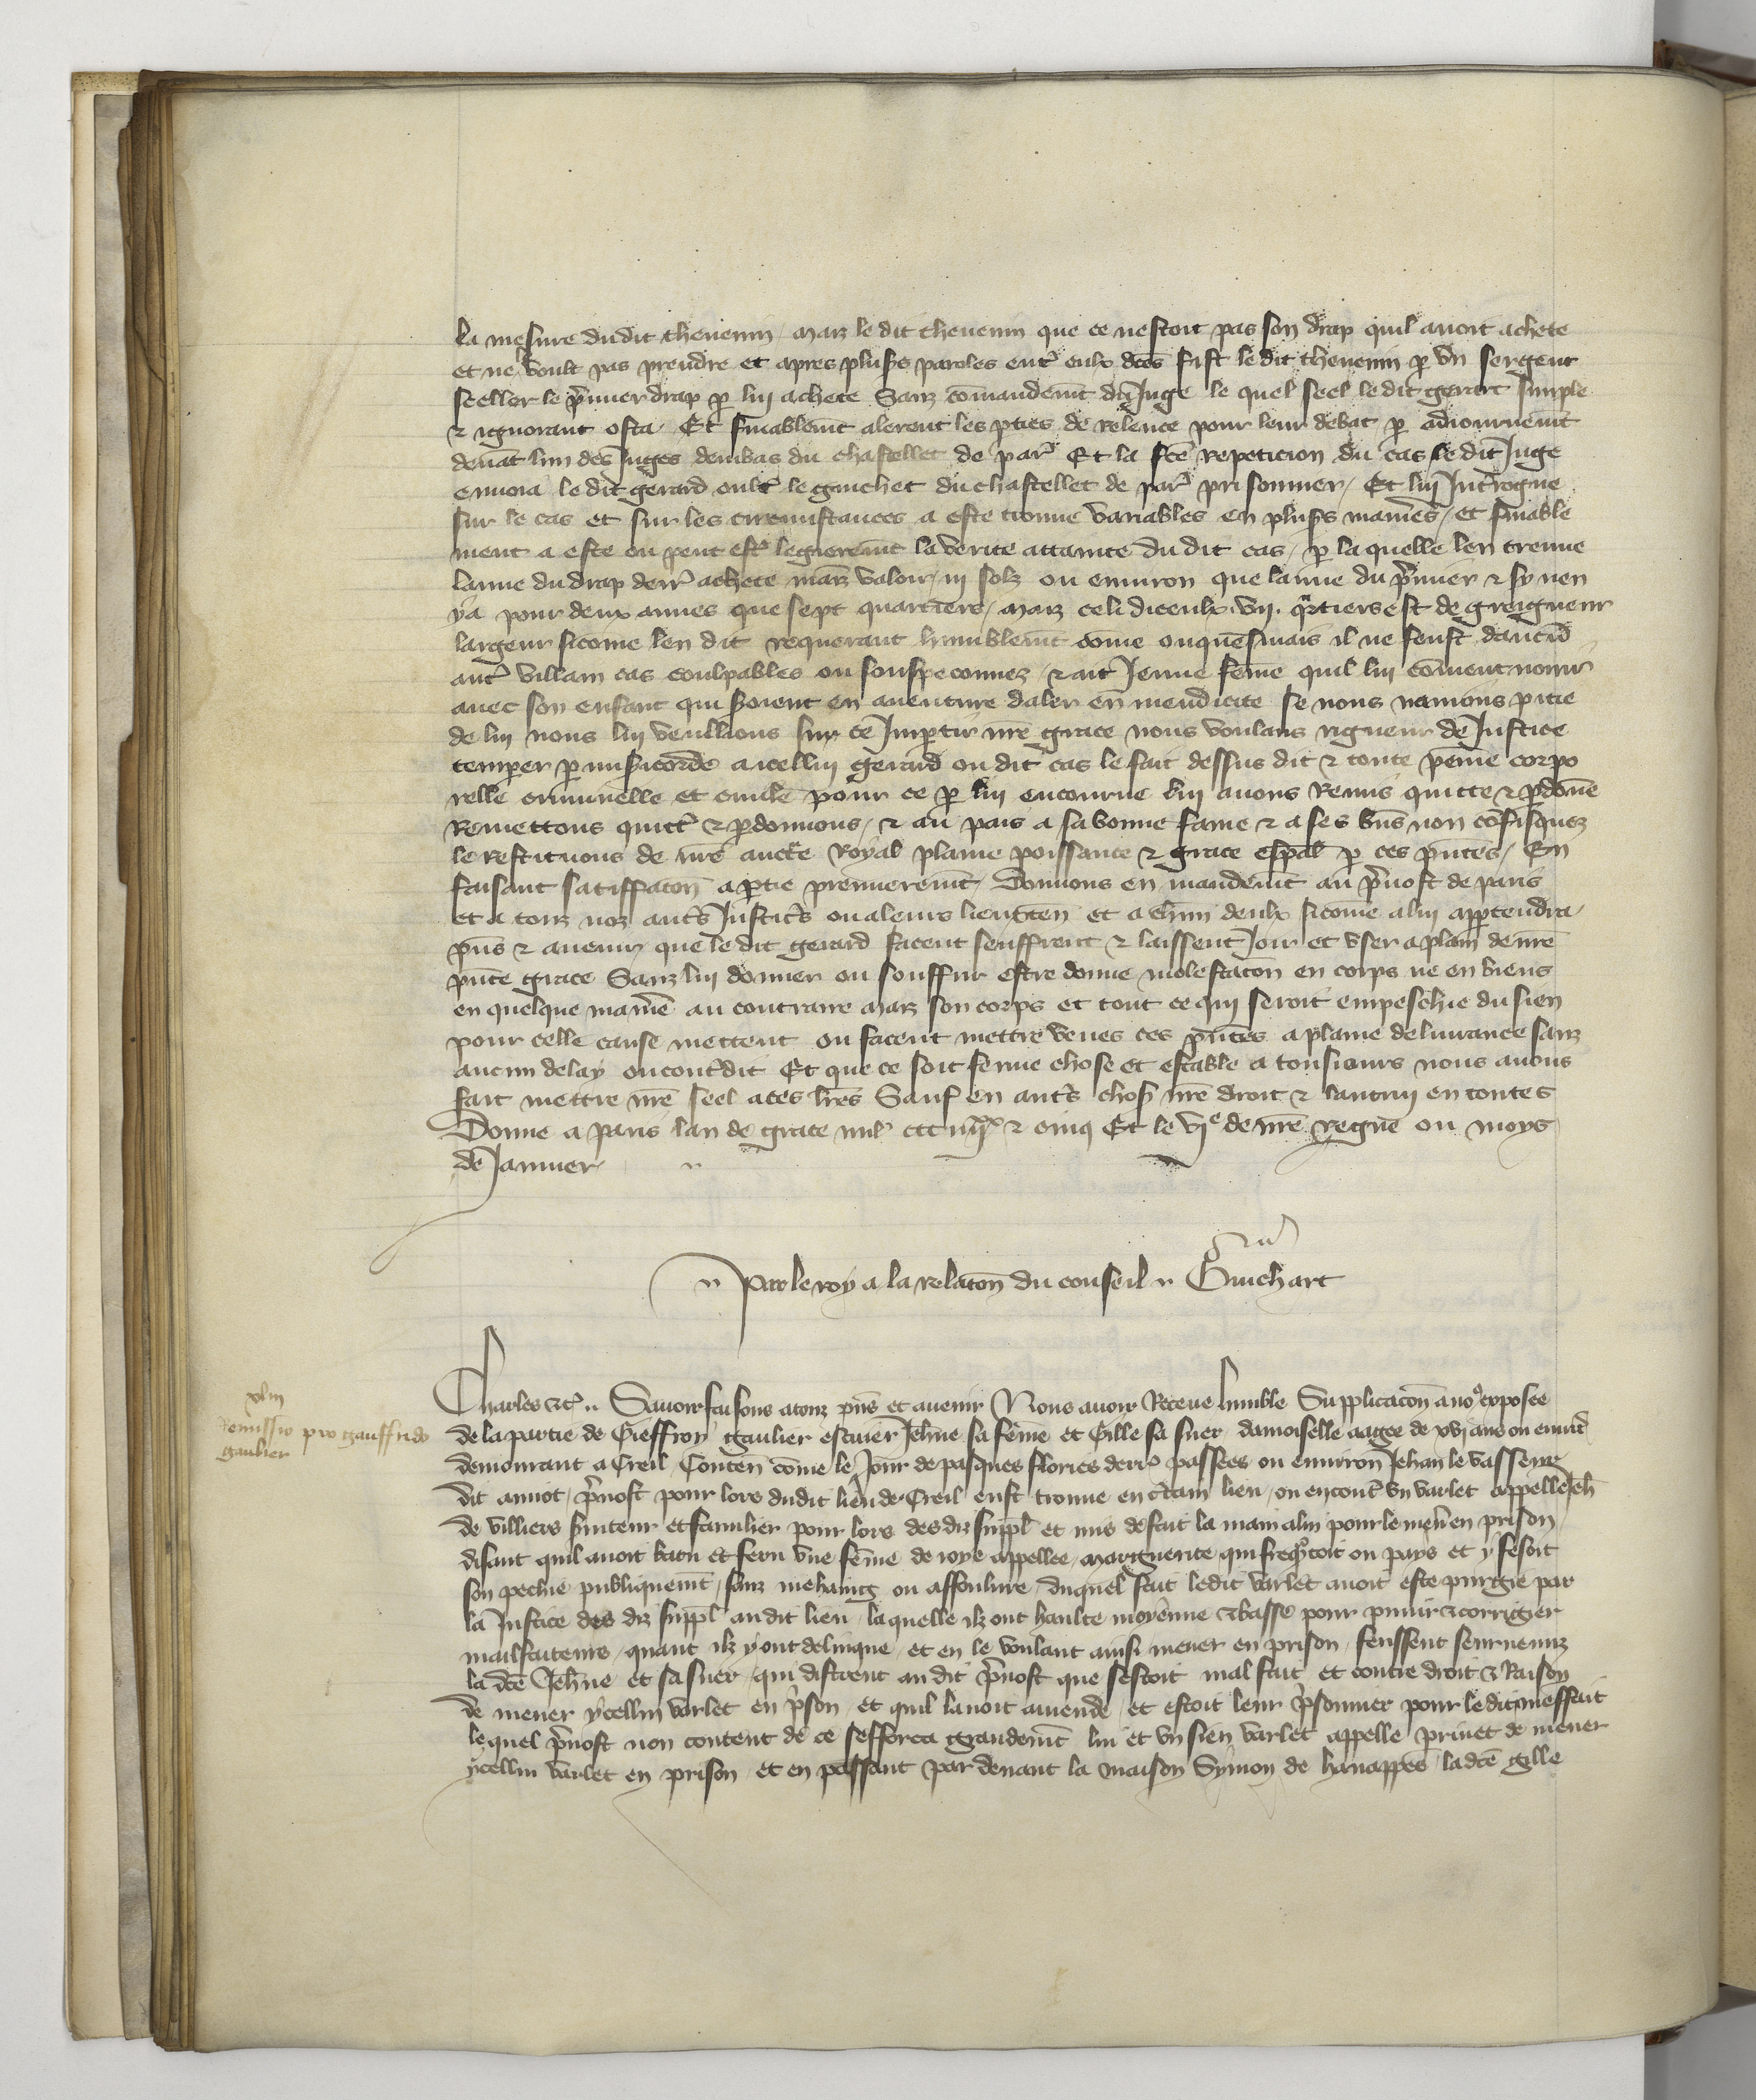 la mesure dudit thevenin, mais le dit thevenin que ce nestoit pas son drap quil avoit achete
et ne voult pas prendre et apres plus̃s paroles entͬ eulx dc̃es fist le dit thevenin ꝑ vn sergent
seeller le p̃mier drap ꝑ lui achete Sanz cõmandemt̃ du Juge le quel seel le dit gerart simple
⁊ ignorant osta. Et finablemt̃ alerent les ꝑties de relence pour leur debat ꝑ adiournemt̃
devãt lun des Juges dem̃bas du chastellet de parͥ Et la fcẽ repeticion du cas le dit Juge
envoia le dit gerard oultͬ le guichet du chastellet de parͥ prisonnier, Et lui Int̃rogue
sur le cas et sur les circunstances a este trouve variables en plus̃s manieres, et finable
ment a este ou peut estͬ legieremt̃ la verite attainte du dit cas, ꝑ la quelle len treuve
laune du drap derrͬ achete mais valoir iij solz ou environ que laune du p̃mier ⁊ sy nen
ya pour deux aunes que sept quartiers, mais celi diceulx .vij. q̃rtiers est de greigneur
largeur sicome len dit requerant humblemt̃ come onquesmais il ne feust dautͬ
autͬ villain cas coulpables ou souspeconnez, ⁊ ait Jeune feme quil lui cõvient norrir
avec son enfant qui soient en aventure daler en mendicite se nous navions pitie
de lui nous lui veullions sur ce Imꝑtir nr̃e grace nous voulans rigueur de Justice
temperer ꝑ mis̃icorde a icellui gerard ou dit cas le fait dessus dit ⁊ toute peine corpo
relle criminelle et civile pour ce ꝑ lui encourue lui avons Remis quicte ⁊ ꝑdone
Remettons quictͬ ⁊ ꝑdonnons, ⁊ au pais a sa bonne fame ⁊ a ses bñs non cõfisquez
le restituons de nr̃e auctͬe Royal plaine poissance ⁊ grace esp̃al ꝑ ces p̃ntes, En
faisant satiffacõn a ꝑtie premieremt̃. Donnons en mandemt̃ au p̃vost de paris
et a touz noz autͬs Justicͬs ou a leurs lieuxten̄ et a ch̃un deulx sicome a lui appͬtendra,
p̃ns ⁊ avenir, que le dit gerard facent seuffrent ⁊ laissent Joir et vser a plain de nr̃e
p̃nte grace Sanz lui donner ou souffrir estre donne molestacõn en corps ne en biens
en quelque manͥe au contraire mais son corps et tout ce qui seroit empeschie du sien
pour celle cause mettent ou facent mettre veues ces p̃ntes a plaine delivrance sanz
aucun delay ou contͬdit Et que ce soit ferme chose et estable a tousiours nous avons
fait mettre nr̃e seel a ces lr̃es Sauf en autͬs chos̃ nr̃e droit ⁊ lautruy en toutes
Donne a paris lan de grace mil ccc iiij^xx ⁊ cinq Et le vj^e de nr̃e regne ou moys
de Janvier.
Par le roy a la relacõn du conseil Guichart
xliij
Remissio pro gauffrido
gaulier
Charles ⁊cͬ Savoir faisons a touz p̃ns et avenir Nous avoir Receue humble Supplicacõn a noꝰ exposee
de la partie de Gieffroy gaulier escuier Jeh̃ne sa feme et Gille sa suer damoiselle aagee de xvj ans ou envirͦ
demourant a Creil, Conten̄ cõme le Jour de pasques flories derrͬ passees ou environ Jehan le vasseur
dit amiot, p̃vost pour lors dudit lieu de Creil eust trouve en cͬtain lieu, ou encontͬ vn varlet appelle Jeh̃
de villiers s̃viteur et familier pour lors des diz suppl̃ et mis de fait la main a lui pour le men̄ en prison,
disant quil avoit batu et feru vne feme de ioye appellee marguerite qui freq̃ntoit ou pays et y fesoit
son pechie publiquemt̃, sanz mehaing ou affoulure, duquel fait ledit varlet avoit este purgie par
la Justice des diz suppl̃ audit lieu, laquelle ilz ont haulte moyenne ⁊ basse pour punir ⁊ corrigier
malfaiteurs, quant ilz y ont delinque, et en le voulant ainsi mener en prison, feussent seurvenuz
la dc̃e Jeh̃ne et sa suer, qui distrent au dit p̃vost que sestoit mal fait et contre droit ⁊ Raison
de mener ycellui varlet en p̃son, et quil lavoit amende, et estoit leur p̃sonnier pour le dit meffait
lequel p̃vost non content de ce sefforca grandemt̃ lui et vn sien varlet appelle privet de mener
ycellui varlet en prison, et en passant par devant la maison Symon de hanappes ladc̃e gille